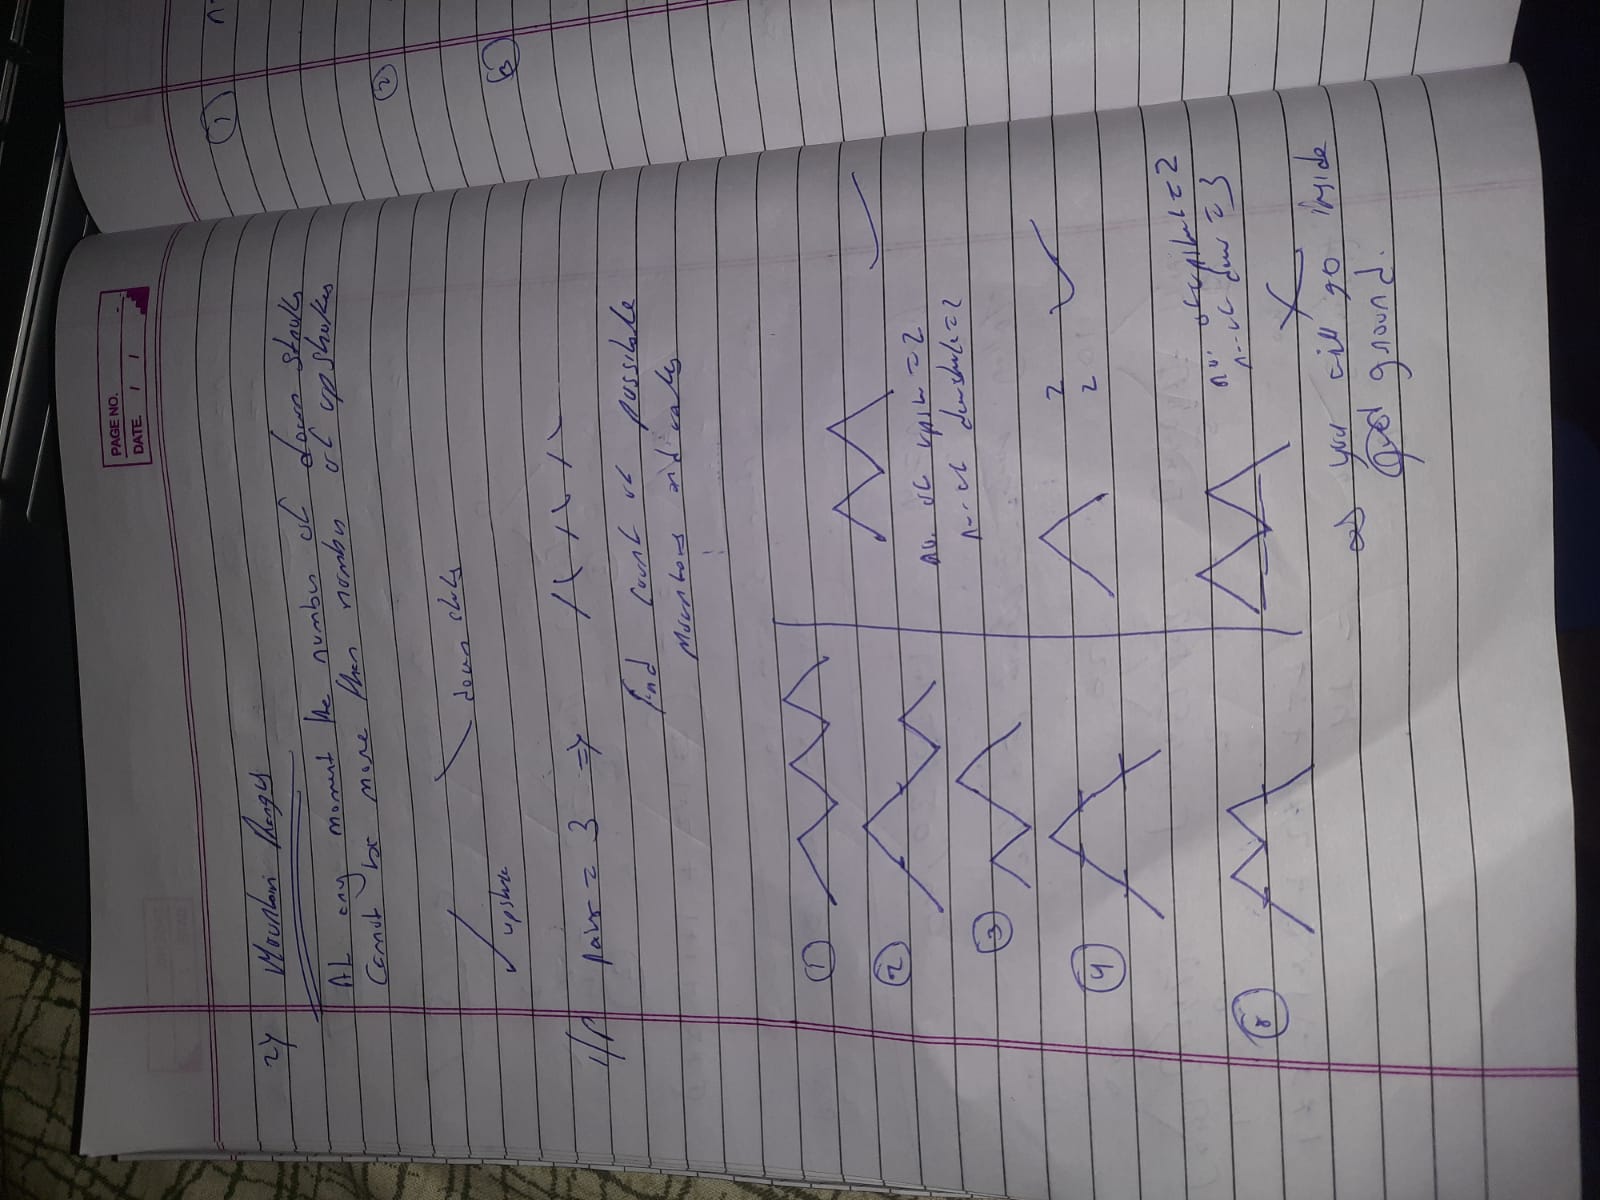 PAGE NO.
DATE. / /
2) Mountain Ranges
At any moment the number of down strokes
Cannot be more than number of upstrokes
down stroks
upstroke
i/p pairs = 3 =>
Find count of possible
mountains and valleys
1
2
no. of upstr = 2
no. of downstroke = 2
3
2
4
2
no. of upstroke = 2
no. of down = 3
5
X
as you will go inside
ground.
1
2
3